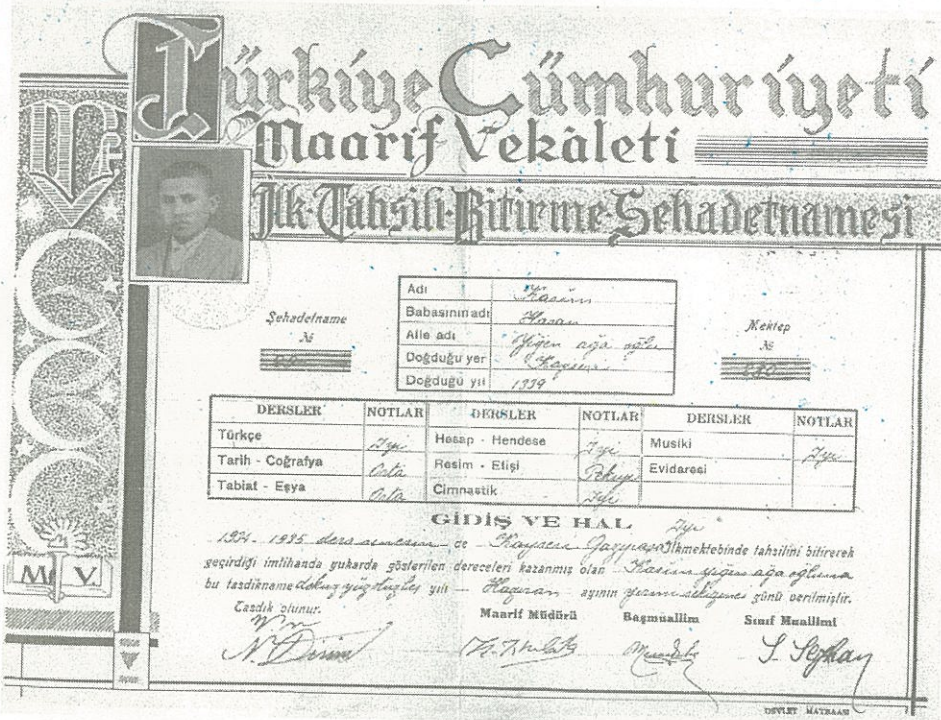 Türkiye Cümhuriyeti
Maarif Vekâleti
İlk-Tahsili-Bitirme-Şehadetnamesi
Adı Kasım
Babasının adı Hasan
Aile adı Yiğen ağa oğlu
Doğduğu yer Kayseri
Doğduğu yıl 1339
Şehadetname
№
Mektep
№
DERSLER NOTLAR DERSLER NOTLAR DERSLER NOTLAR
Türkçe İyi Hesap - Hendese İyi Musiki İyi
Tarih - Coğrafya Orta Resim - Elişi Pekiyi Evidaresi
Tabiat - Eşya Orta Cimnastik İyi
GİDİŞ VE HAL İyi
1934-1935 ders senesinde Kayseri Gazipaşa İlkmektebinde tahsilini bitirerek
geçirdiği imtihanda yukarda gösterilen dereceleri kazanmış olan Kasım yiğen ağa oğluna
bu tasdikname dokuz yüz yılı Haziran ayının yirmi sekizinci günü verilmiştir.
Tasdik olunur.
Maarif Müdürü Başmuallim Sınıf Muallimi
N. Dirim
S. Seyhan
M V
DEVLET MATBAASI